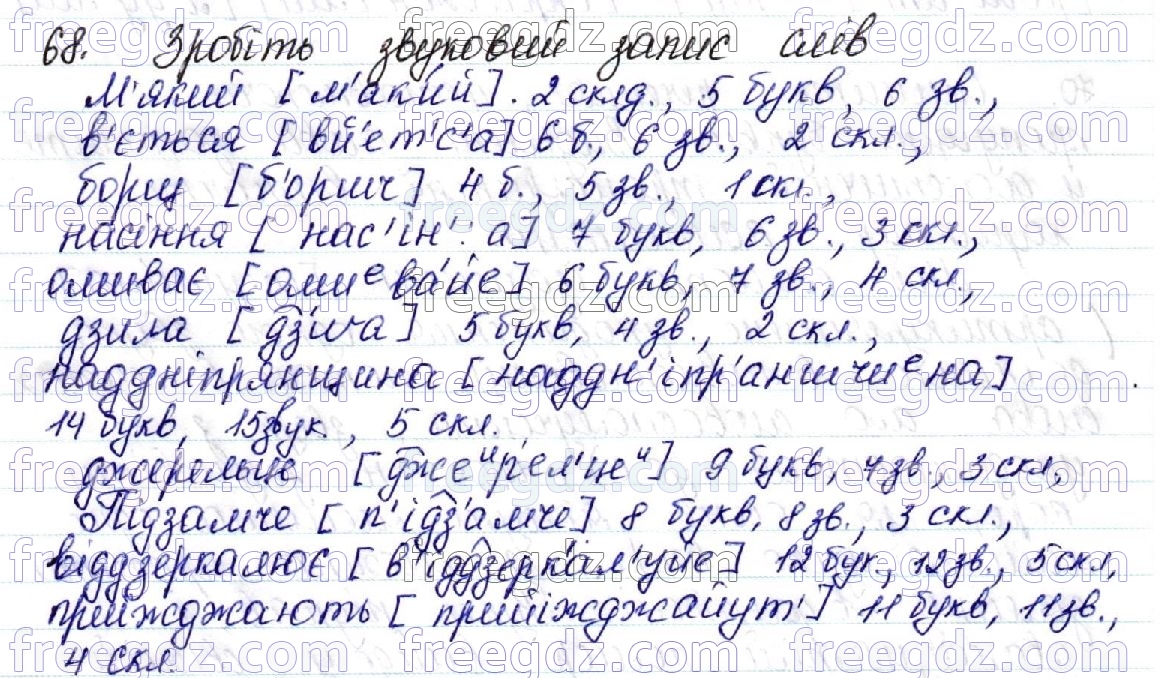 68. Зробіть звуковий запис слів
М'який [м'aкий]. 2 склд., 5 букв, 6 зв.,
в'ється [вй'ет'с'а] 6 б., 6 зв., 2 скл.,
борщ [б'оршч] 4 б., 5 зв., 1 скл.,
насіння [нас'ін':а] 7 букв, 6 зв., 3 скл.,
омиває [омиᵉва́йе] 6 букв, 7 зв., 4 скл.,
дзига [дз'ича] 5 букв, 4 зв., 2 скл.,
наддніпрянщина [наддн'іпр'аншчиᵉна]
14 букв, 15 звук., 5 скл.
джерельце [джеᶦрел'цеᶦ] 9 букв, 7 зв., 3 скл,
Підзамче [п'ідз'амче] 8 букв, 8 зв., 3 скл.,
віддзеркалює [в'іддзеркал'уйе] 12 бук., 12 зв., 5 скл,
приїжджають [прийіжджайут'] 11 букв, 11 зв.,
4 скл.
freegdz.com